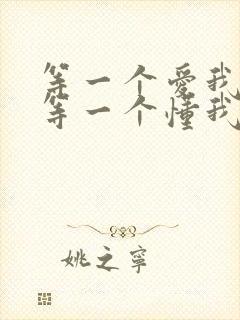 等一个爱我
等一个懂我
姚之宁